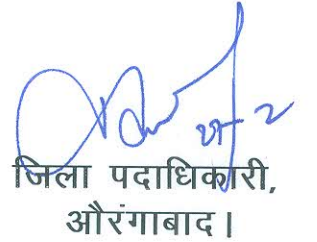 जिला पदाधिकारी,
औरंगाबाद।